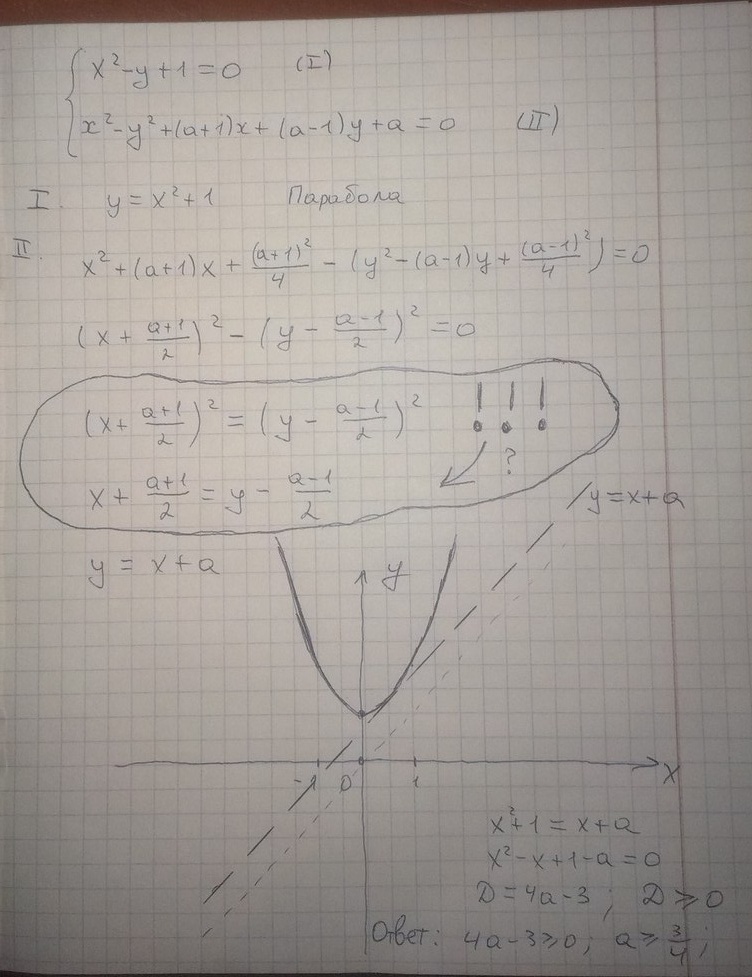 x²-y+1=0 (I)
x²-y²+(a+1)x+(a-1)y+a=0 (II)
I. y=x²+1 Парабола
II. x²+(a+1)x+(a+1)²/4-(y²-(a-1)y+(a-1)²/4)=0
(x+(a+1)/2)²-(y-(a-1)/2)²=0
(x+(a+1)/2)²=(y-(a-1)/2)² !!!
?
x+(a+1)/2=y-(a-1)/2
y=x+a
y=x+a
y
-1 0 1 x
x²+1=x+a
x²-x+1-a=0
D=4a-3; D≥0
Ответ: 4a-3≥0; a≥3/4;